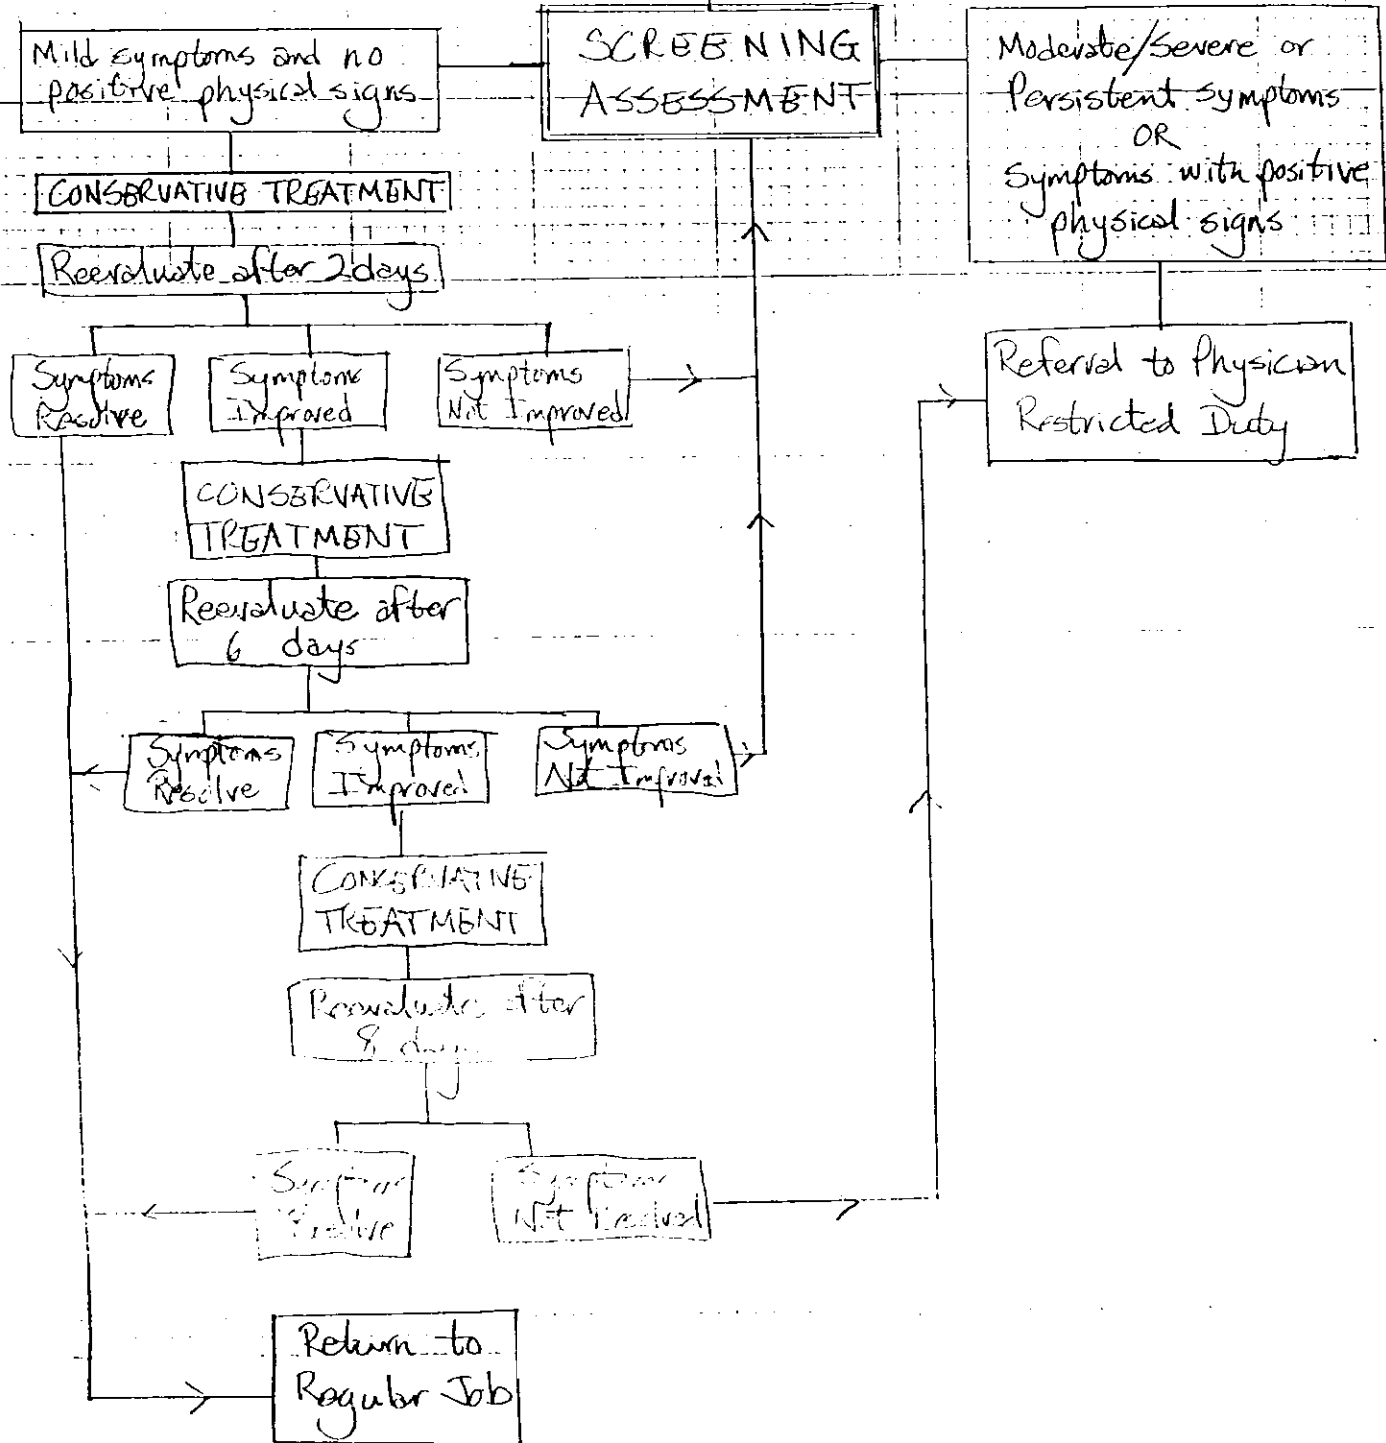 Mild symptoms and no
positive physical signs
SCREENING
ASSESSMENT
Moderate/Severe or
Persistent symptoms
OR
Symptoms with positive
physical signs
CONSERVATIVE TREATMENT
Reevaluate after 2 days
Symptoms
Resolve
Symptoms
Improved
Symptoms
Not Improved
Referral to Physician
Restricted Duty
CONSERVATIVE
TREATMENT
Reevaluate after
6 days
Symptoms
Resolve
Symptoms
Improved
Symptoms
Not Improved
CONSERVATIVE
TREATMENT
Reevaluate after
8 days
Symptoms
Resolve
Symptoms
Not Resolved
Return to
Regular Job